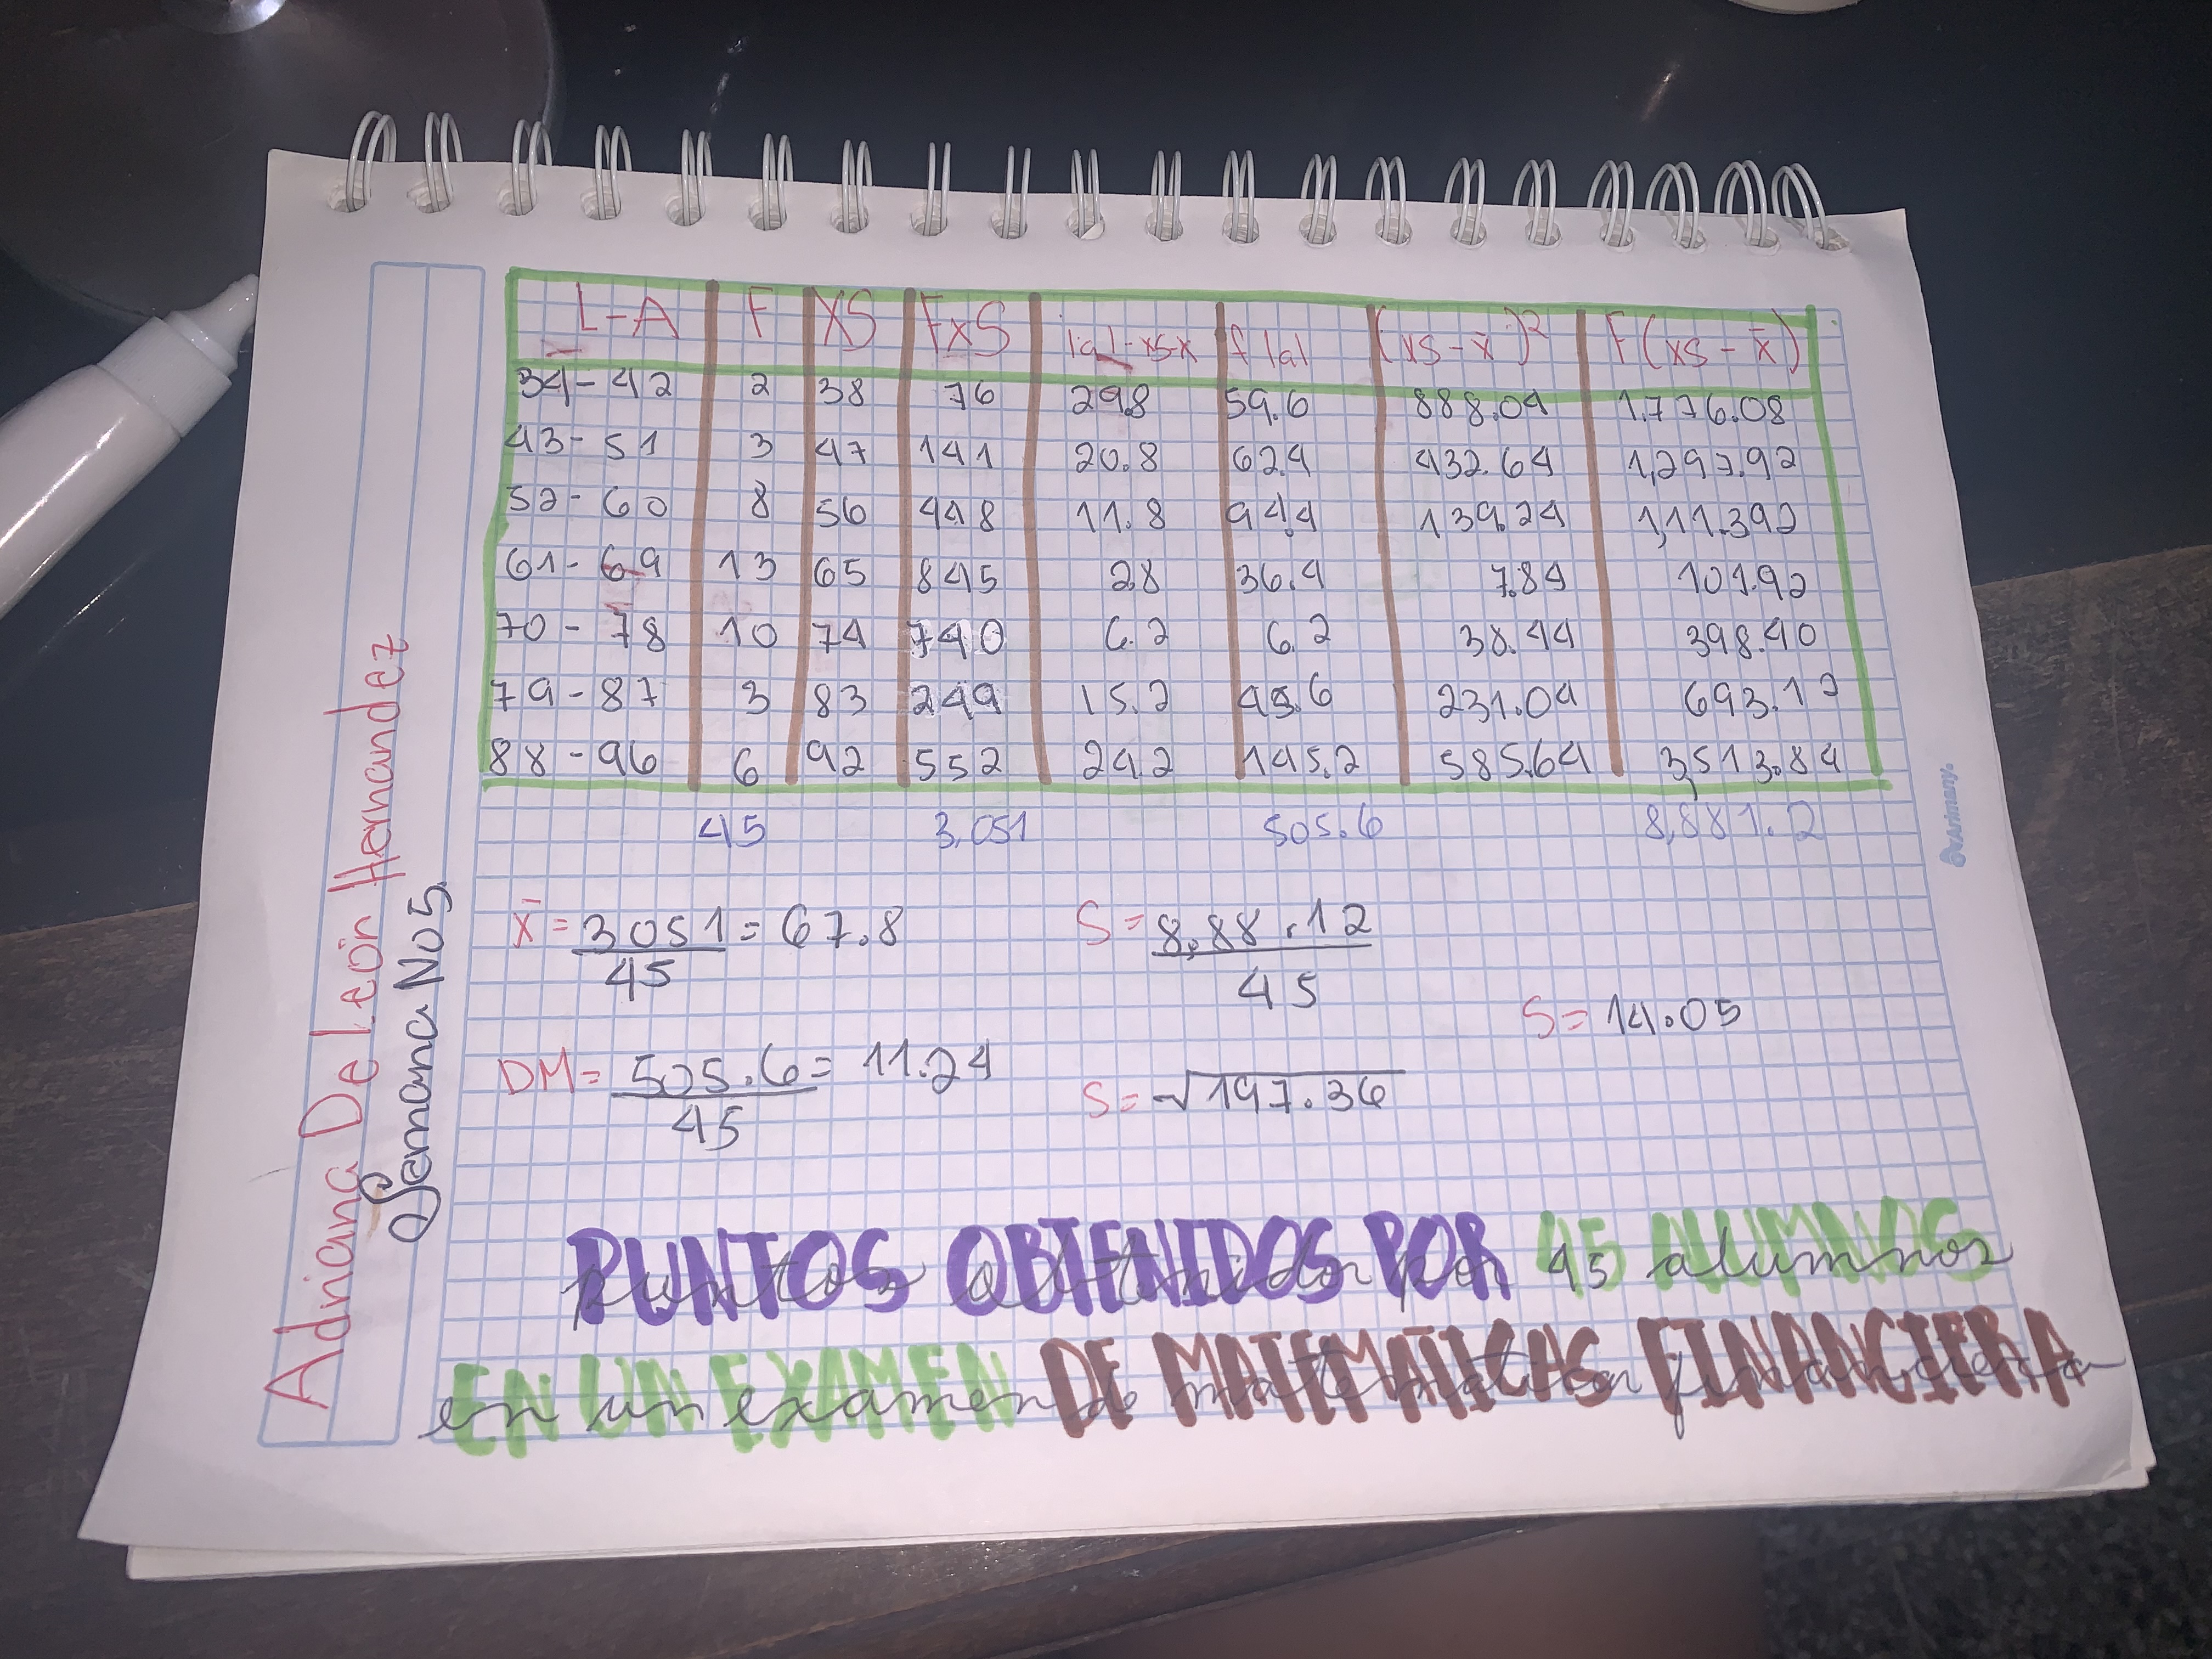 L-A F XS FxS |a|-xs-x f |a| (xs-x̄)² F(xs-x̄)
34-42 2 38 76 29.8 59.6 888.04 1.776.08
43-51 3 47 141 20.8 62.4 432.64 1,297.92
52-60 8 56 448 11.8 94.4 139.24 1,11.392
61-69 13 65 845 2.8 36.4 7.84 101.92
70-78 10 74 740 6.2 6.2 38.44 398.40
79-87 3 83 249 15.2 45.6 231.04 693.12
88-96 6 92 552 24.2 145.2 585.64 3,513.84
45 3,051 505.6 8,881.2
x̄ = 3051 = 67.8
45
S = 8,88.12
45
S = 14.05
DM = 505.6 = 11.24
45
S = √197.36
PUNTOS OBTENIDOS POR 45 ALUMNOS
puntos obtenidos por 45 alumnos
EN UN EXAMEN DE MATEMATICAS FINANCIERA
en un examen de matematicas financiera
Adriana De León Hernandez
Semana No5.
Arimany.